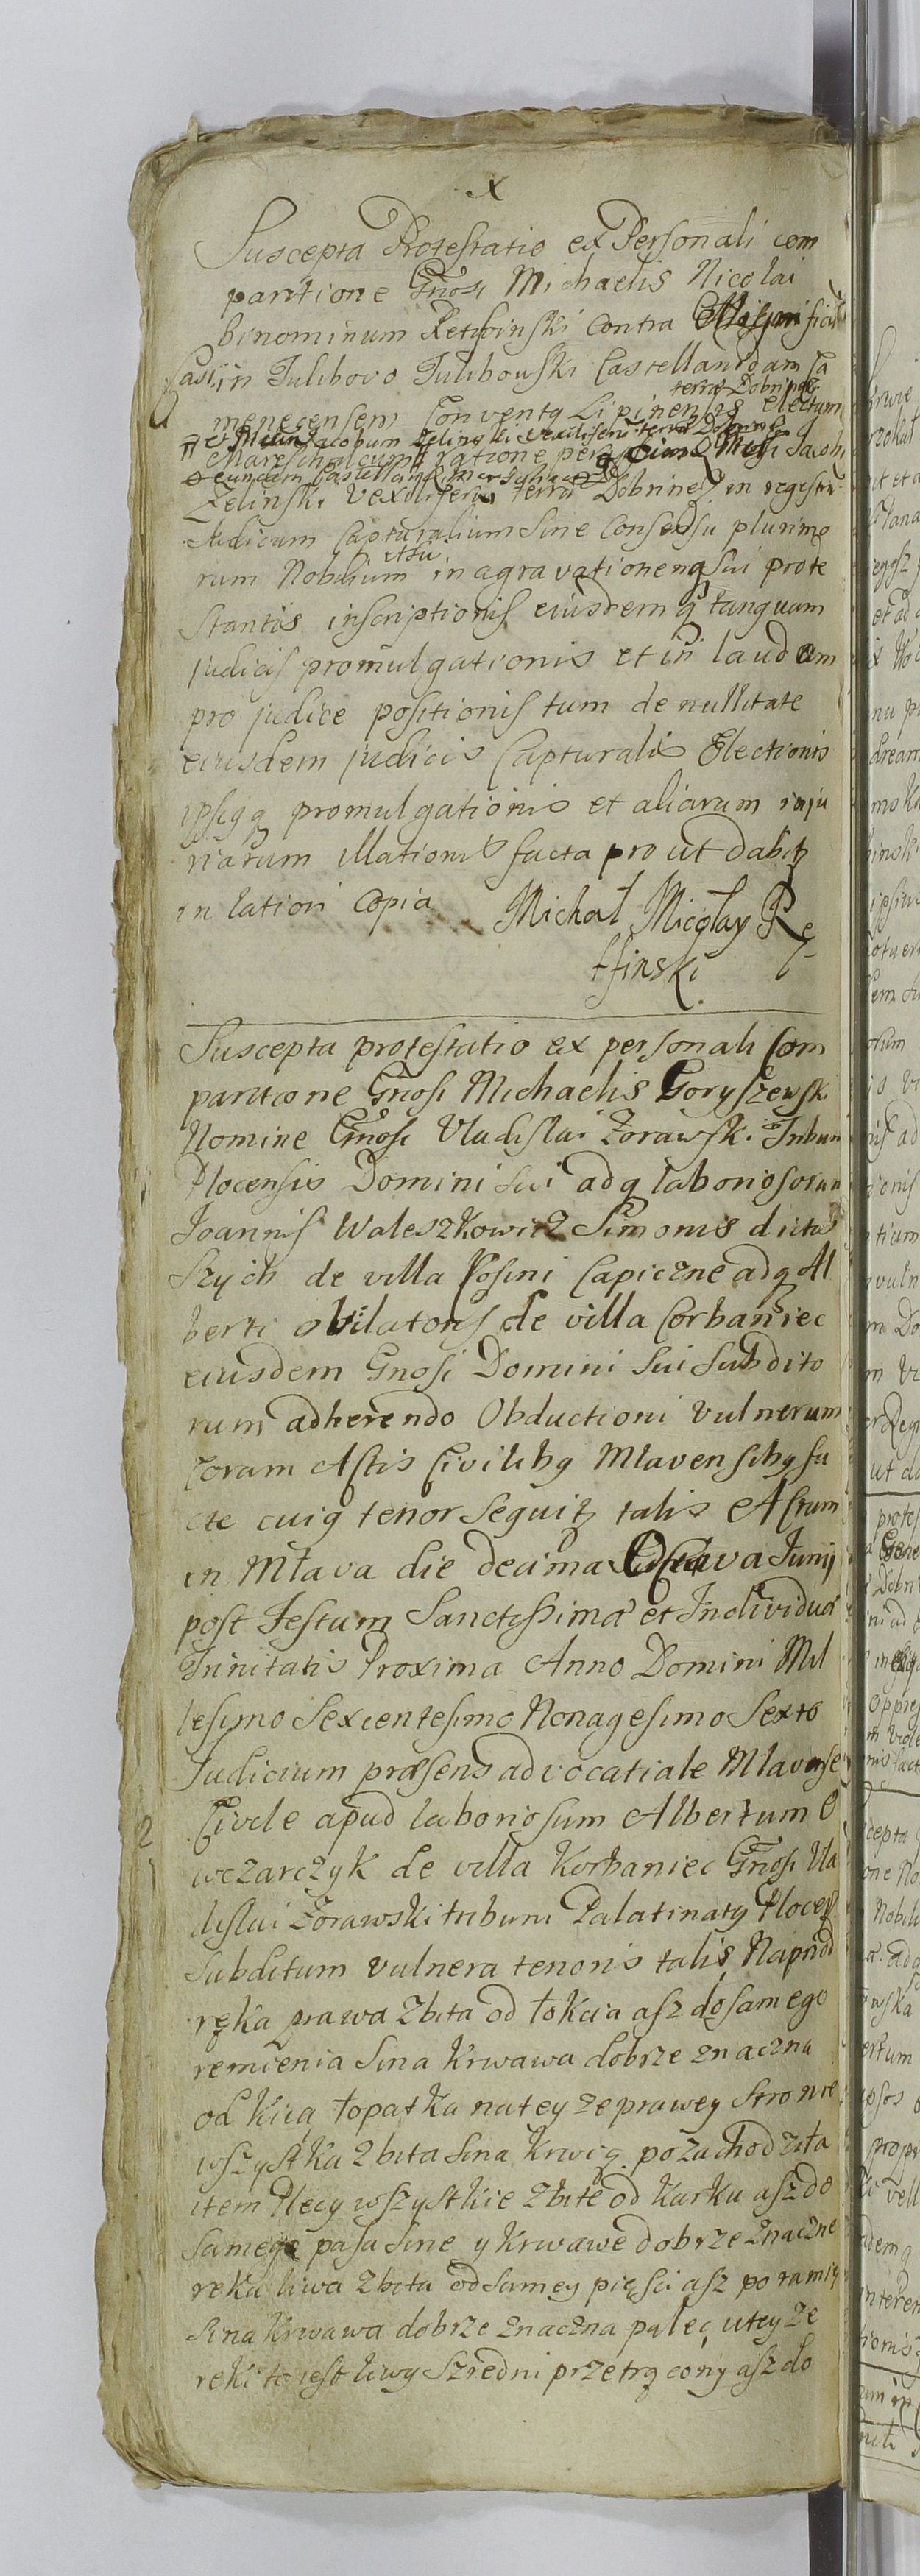 X
Suscepta Protestatio ex Personali com
paritione Gnosi Michaelis Nicolai
binominum Retwinski Contra
in Tulibovo Tulibowski Castellanidam Ca
terræ Dobrinen
menecensem Conventq Lipinensis Electum
Jacobum Zelinski Vexilliferu terræ
Mareschalcum ratione
eundem Castellanid
Zelinski Vexiliferu terræ Dobrinen in regestru
Judicum Capturalium Sine Consensu plurimo
rum Nobilium in agravationemq sui prote
stantis inscriptionis eiusdemq tanquam
judicis promulgationis et in laudum
pro judice positionis tum de nullitate
eiusdem judicis Capturalis Electionis
ipsiqq promulgationis et aliarum inju
riarum illationis facta pro ut dabitz
in lationi Copia Michał Micołay Re
tfinski
Suscepta protestatio ex personali Com
paritione Gnosi Michaelis Goryszewsk
Nomine Gnosi Vladislai Zorawski Tribun
Plocensis Domini sui adq laboriosorum
Joannis Waleszkowicz Simonis dictus
Szych de villa Kosini Capiczne adq Al
berti ovilatoris de villa Corbaniec
eiusdem Gnosi Domini Sui Subdito
rum adherendo Obductioni Vulnerum
Coram Actis Civilibq Mlavensibq fa
cte cuiq tenor sequitz talis Actum
in Mława die decima Octava Junij
post Festum Sanctissimæ et Individuæ
Trinitatis Proxima Anno Domini Mil
lesimo Sexcentesimo Nonagesimo Sexto
Judicium præsens advocatiale Mlavense
Civile apud laboriosum Albertum O
wczarczyk de villa Korbaniec Gnosi Vla
dislai Zorawski tribuni Palatinatq Plocen
Subditum vulnera tenoris talis Naprod
ręka prawa zbita od łokcia asz do samego
remienia sina krwawa dobrze znaczna
od kiia łopatka na tey ze prawey stronie
wszystka zbita sina krwią pozachodziła
item Plecy wszystkie zbite od karku asz do
samego pasa sine y krwawe dobrze znaczne
reka liwa zbita od samey pięsci asz po ramię
sina krwawa dobrze znaczna palec u tey ze
reki to iest liwy szredni przetrącony asz do
2